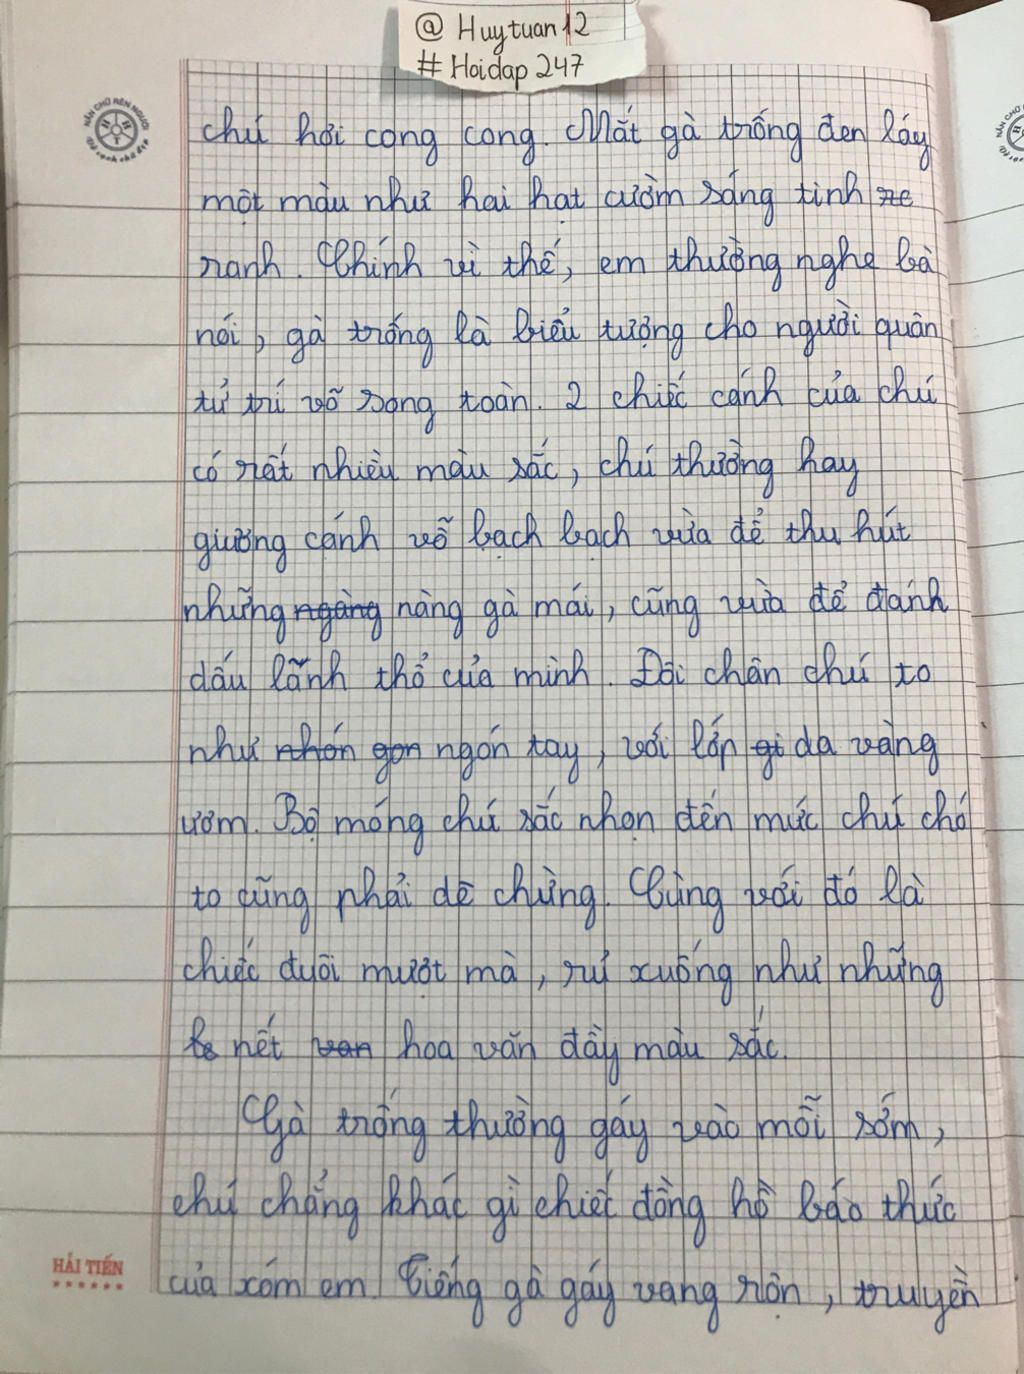 @ Huytuan12
# Hoidap 247
NẮN CHỮ RÈN NGƯỜI
chú hơi cong cong. Mắt gà trống đen láy
một màu như hai hạt cườm sáng tinh re
ranh. Chính vì thế, em thường nghe bà
nói, gà trống là biểu tượng cho người quân
tử trí võ song toàn. 2 chiếc cánh của chú
có rất nhiều màu sắc, chú thường hay
giương cánh vỗ bạch bạch vừa để thu hút
những ngàng nàng gà mái, cũng vừa để đánh
dấu lãnh thổ của mình. Đôi chân chú to
như nhón gon ngón tay, với lớp gi da vàng
ươm. Bộ móng chú sắc nhọn đến mức chú chó
to cũng phải dè chừng. Cùng với đó là
chiếc đuôi mượt mà, rủ xuống như những
nét van hoa văn đầy màu sắc.
Gà trống thường gáy vào mỗi sớm,
chú chẳng khác gì chiếc đồng hồ báo thức
của xóm em. Tiếng gà gáy vang rộn, truyền
HẢI TIẾN